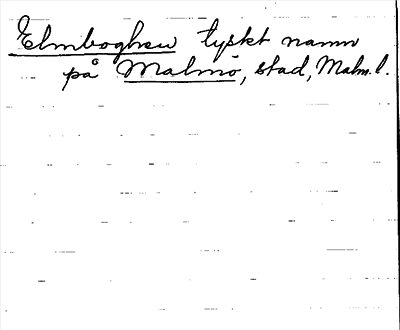 Elmboghen tyskt namn
på Malmö, stad, Malm. l.